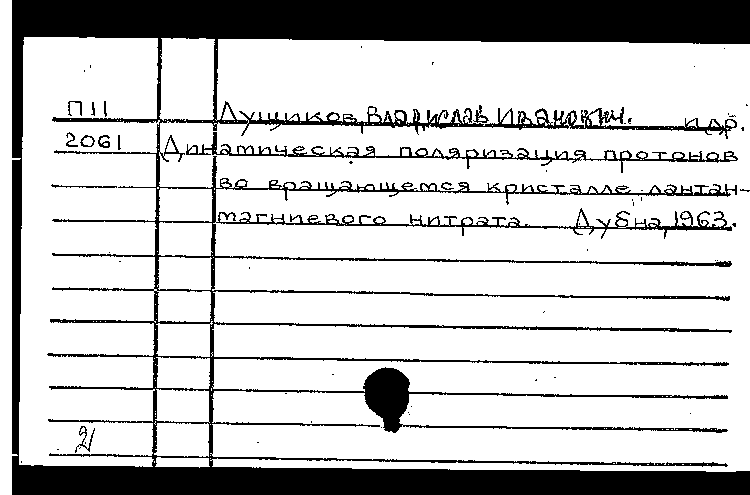 П11 Лущиков, Владислав Иванович. и др.
2061 Динамическая поляризация протонов
во вращающемся кристалле лантан-
магниевого нитрата. Дубна, 1963.
21